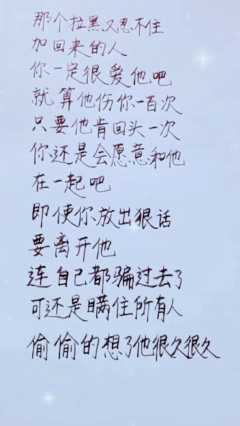 那个拉黑又忍不住
加回来的人
你一定很爱他吧
就算他伤你一百次
只要他肯回头一次
你还是会愿意和他
在一起吧
即使你放出狠话
要离开他
连自己都骗过去了
可还是瞒住所有人
偷偷的想了他很久很久